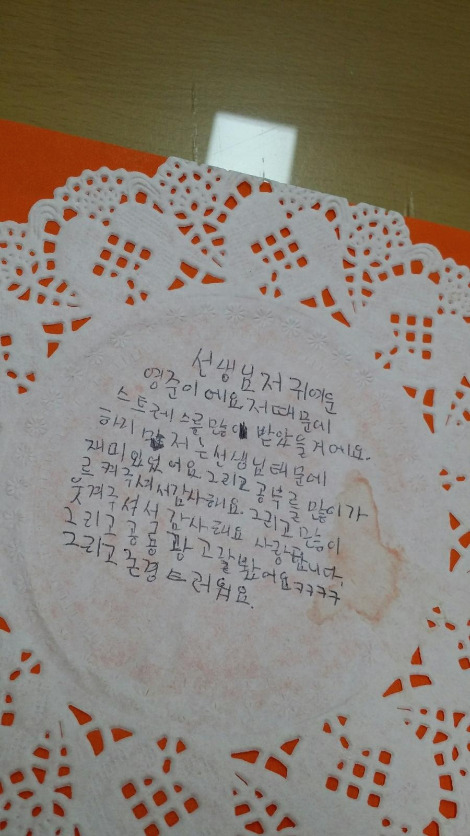 선생님 저 귀여운
영준이에요. 저 때문에
스트레스를 많이 받았을거에요.
하지만 저는 선생님 때문에
재미있었어요. 그리고 공부를 많이 가
르켜주셔서 감사해요. 그리고 많이
웃겨주셔서 감사해요 사랑합니다.
그리고 공룡 광고 잘봤어요ㅋㅋㅋㅋ
그리고 존경